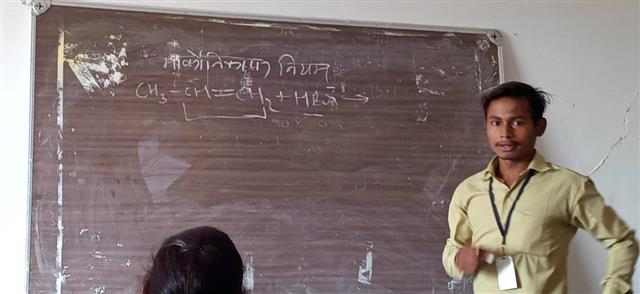 मार्कोनिकाफ नियम
CH₃-CH=CH₂+HBr→